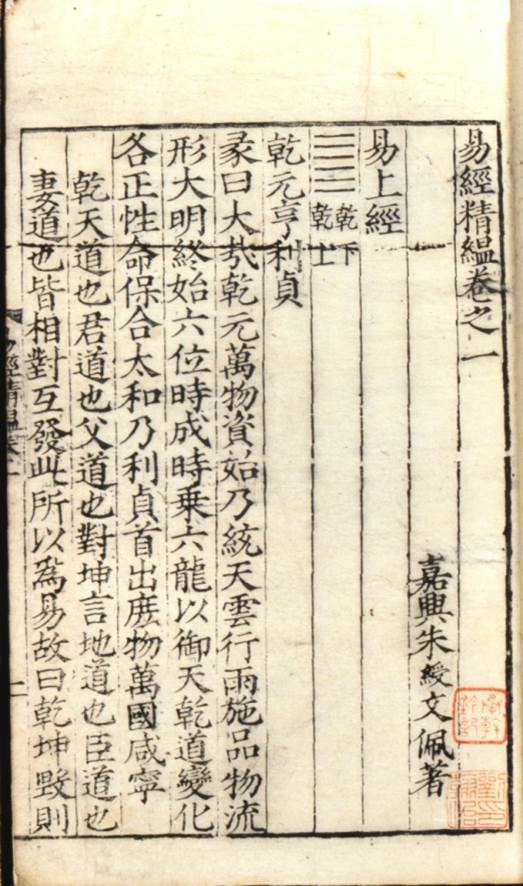 易經精縕卷之一
嘉興朱綬文佩著
易上經
乾下
乾上
乾元亨利貞
彖曰大哉乾元萬物資始乃統天雲行雨施品物流
形大明終始六位時成時乘六龍以御天乾道變化
各正性命保合太和乃利貞首出庶物萬國咸寧
乾天道也君道也父道也對坤言地道也臣道也
妻道也皆相對互發此所以為易故曰乾坤毀則